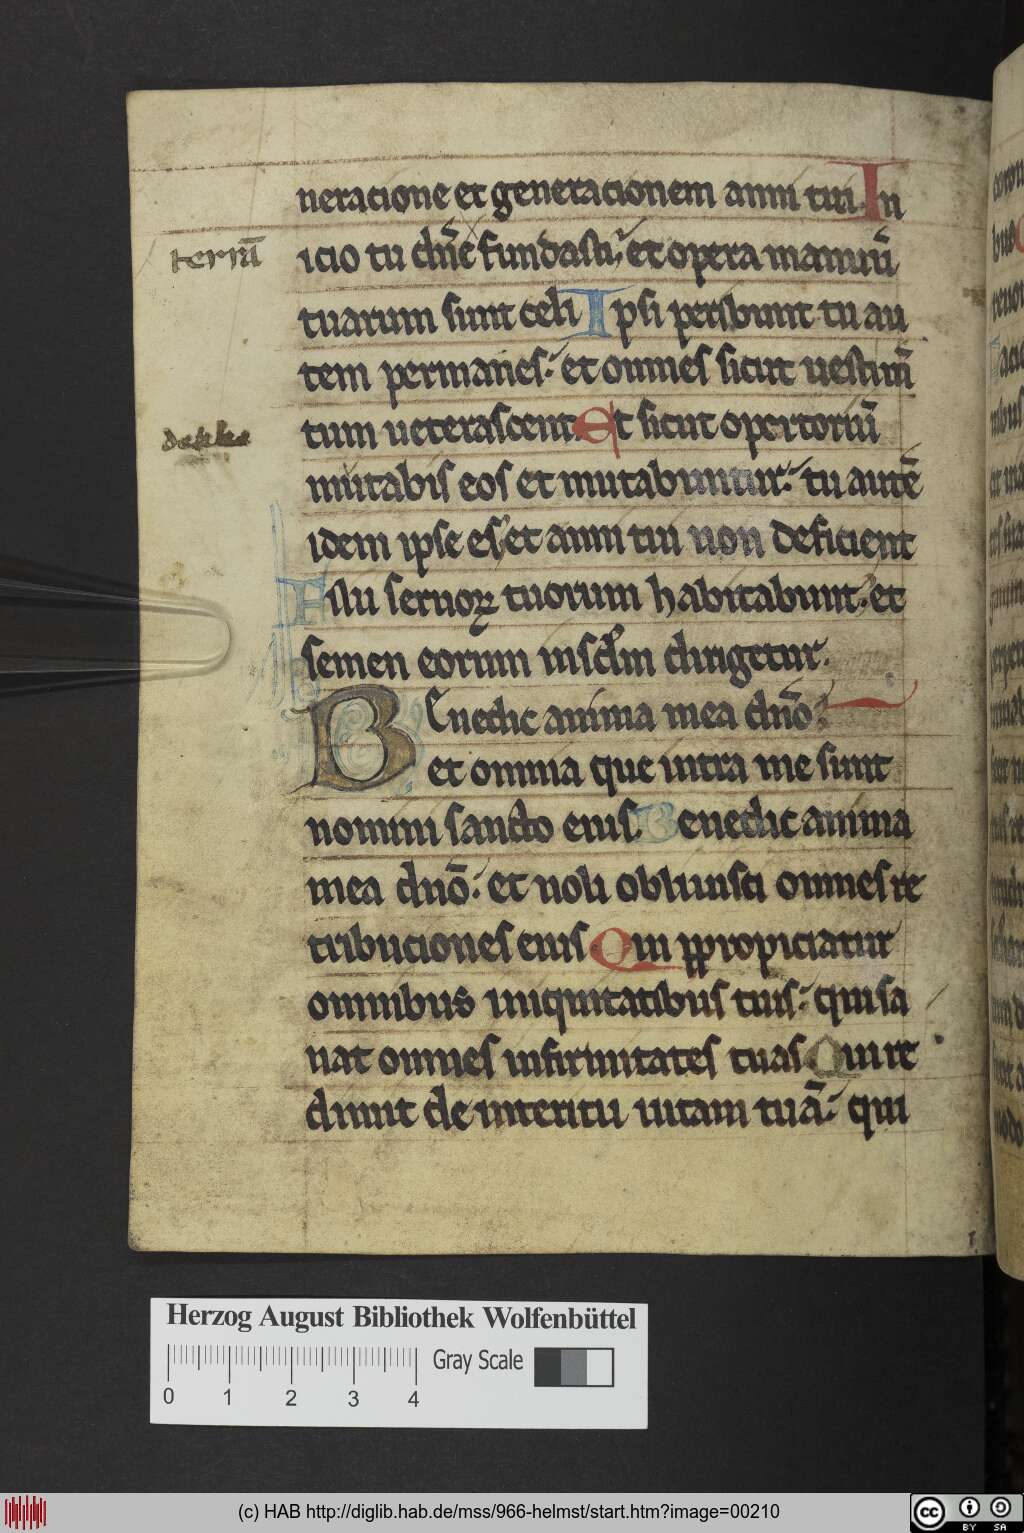 neracione et generacionem anni tui. In
icio tu dn̄e fundasti. et opera manuū
terrā
tuarum sunt celi Ipsi peribunt tu au
tem permanes. et omnes sicut uestim̄
tum ueterascent Et sicut opertoriū
mutabis eos et mutabuntur. tu autē
idem ipse es et anni tui non deficient
Filii seruoꝝ tuorum habitabunt. et
semen eorum insclm dirigetur.
Benedic anima mea dn̄o.
et omnia que intra me sunt
nomini sancto eius. Benedic anima
mea dn̄o. et noli obliuisci omnes re
tribuciones eius Qui ppropiciatur
omnibus iniquitatibus tuis. qui sa
nat omnes infirmitates tuas Qui re
dimit de interitu uitam tuā. qui
Herzog August Bibliothek Wolfenbüttel
Gray Scale
0 1 2 3 4
(c) HAB http://diglib.hab.de/mss/966-helmst/start.htm?image=00210
cc BY SA